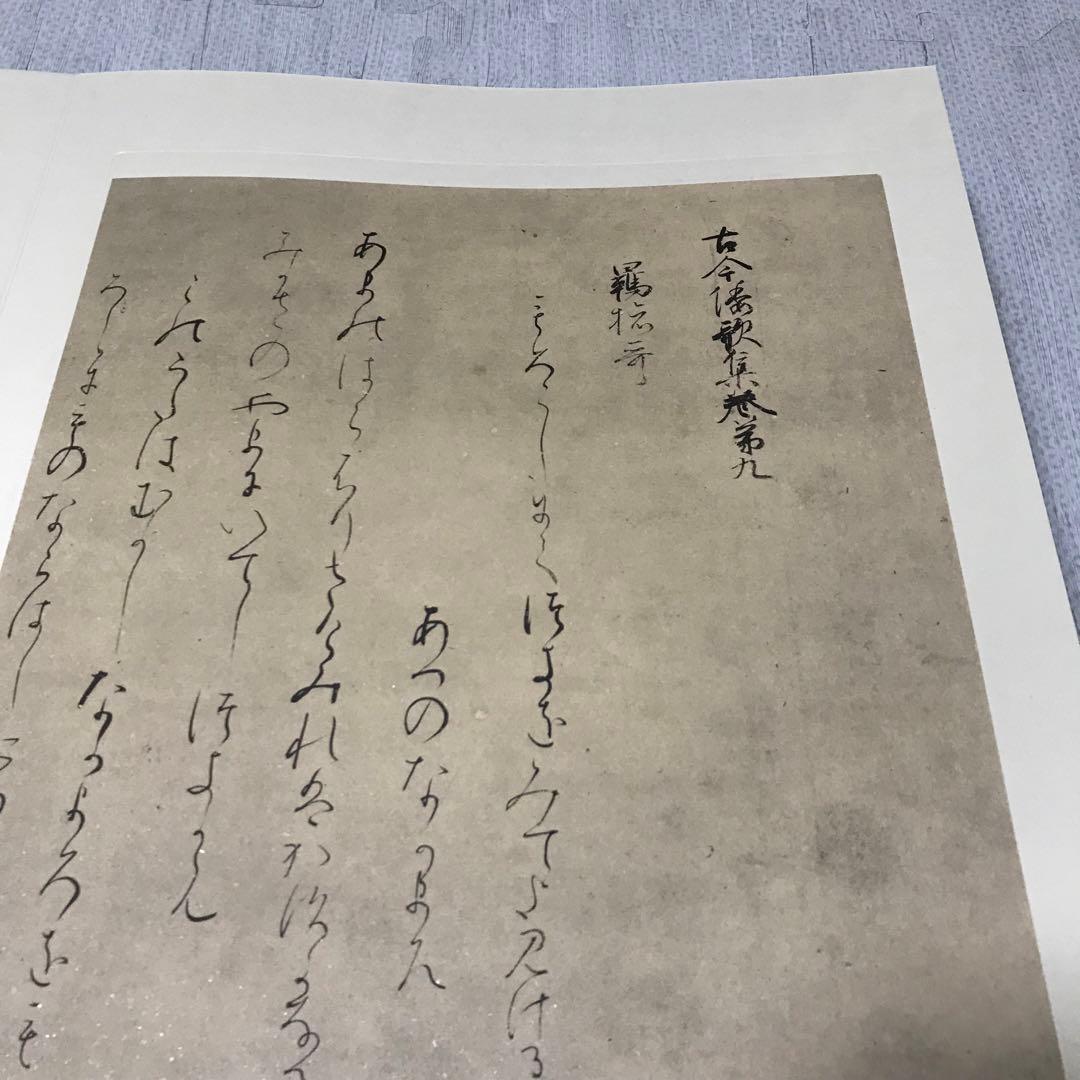 古今倭歌集巻第九
羇旅哥
もろこしにてつきをみてよみける
あへのなかまろ
あまのはらふりさけみれはかすかなる
みかさのやまにいてしつきかも
このうたはむかしなかまろをも
ろこしにものならはしに